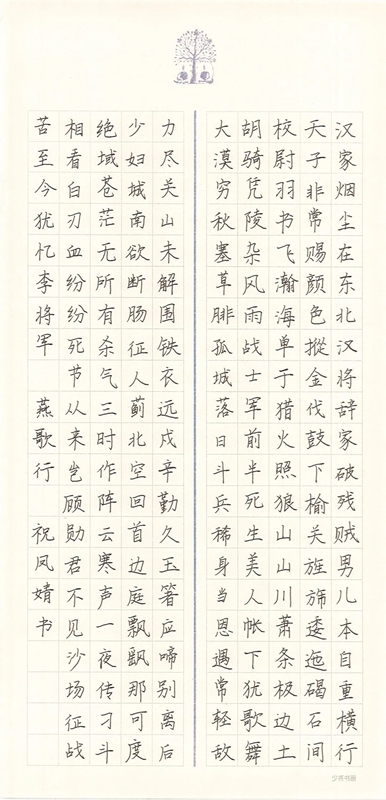 汉家烟尘在东北汉将辞家破残贼男儿本自重横行
天子非常赐颜色摐金伐鼓下榆关旌旆逶迤碣石间
校尉羽书飞瀚海单于猎火照狼山山川萧条极边土
胡骑凭陵杂风雨战士军前半死生美人帐下犹歌舞
大漠穷秋塞草腓孤城落日斗兵稀身当恩遇常轻敌
力尽关山未解围铁衣远戍辛勤久玉箸应啼别离后
少妇城南欲断肠征人蓟北空回首边庭飘飖那可度
绝域苍茫无所有杀气三时作阵云寒声一夜传刁斗
相看白刃血纷纷死节从来岂顾勋君不见沙场征战
苦至今犹忆李将军 燕歌行 祝凤婧书